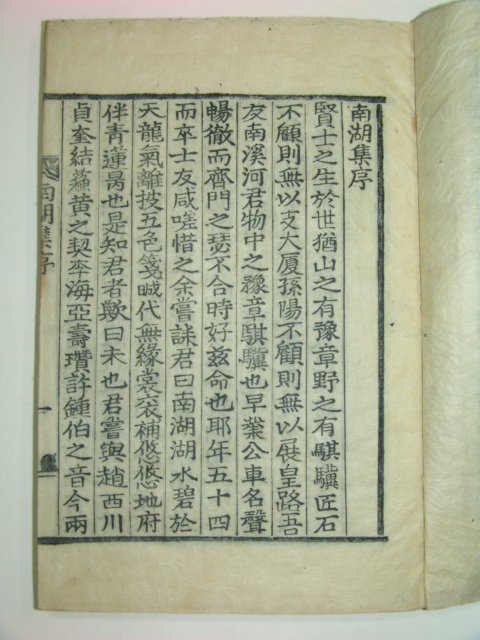 南湖集序
賢士之生於世猶山之有豫章野之有騏驥匠石
不顧則無以支大厦孫陽不顧則無以展皇路吾
友南溪河君物中之豫章騏驥也早業公車名聲
暢徹而齊門之瑟不合時好玆命也耶年五十四
而卒士友咸嗟惜之余嘗誄君曰南湖湖水碧於
天龍氣離披五色箋晠代無緣裳衮補悠悠地府
伴靑蓮曷也是知君者歟曰未也君嘗與趙西川
貞奎結蘓黃之契李海亞壽瓚許鍾伯之音今兩
南湖集序
一